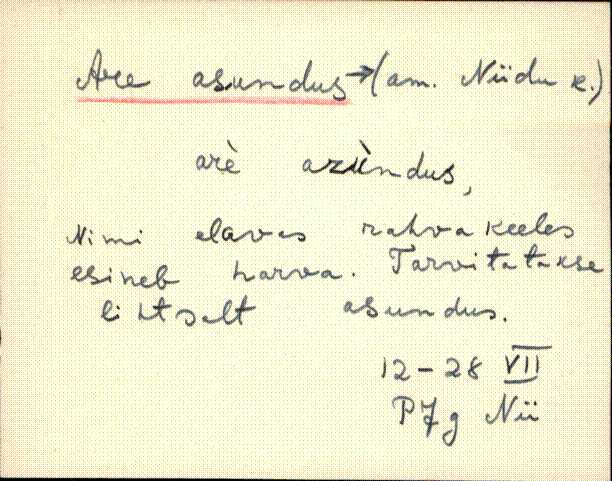 Are asundus → (am. Niidu k.)
arè azùndus,
Nimi elavas rahvakeeles
esineb harva. Tarvitatakse
lihtsalt asundus.
12-28 VII
PJg Nii